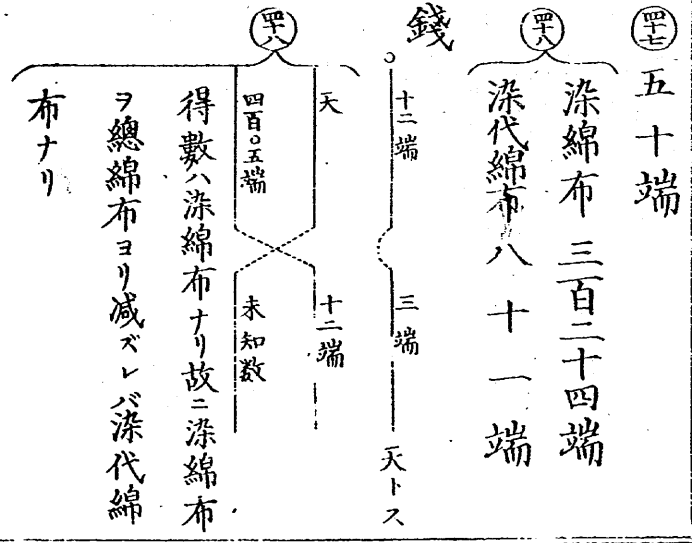 四十七
五十端
四十八
染綿布 三百二十四端
染代綿布八十一端
錢
十二端 三端 天トス
四十八
天 十二端
四百〇五端 未知数
得數ハ染綿布ナリ故ニ染綿布
ヲ總綿布ヨリ减ズレバ染代綿
布ナリ